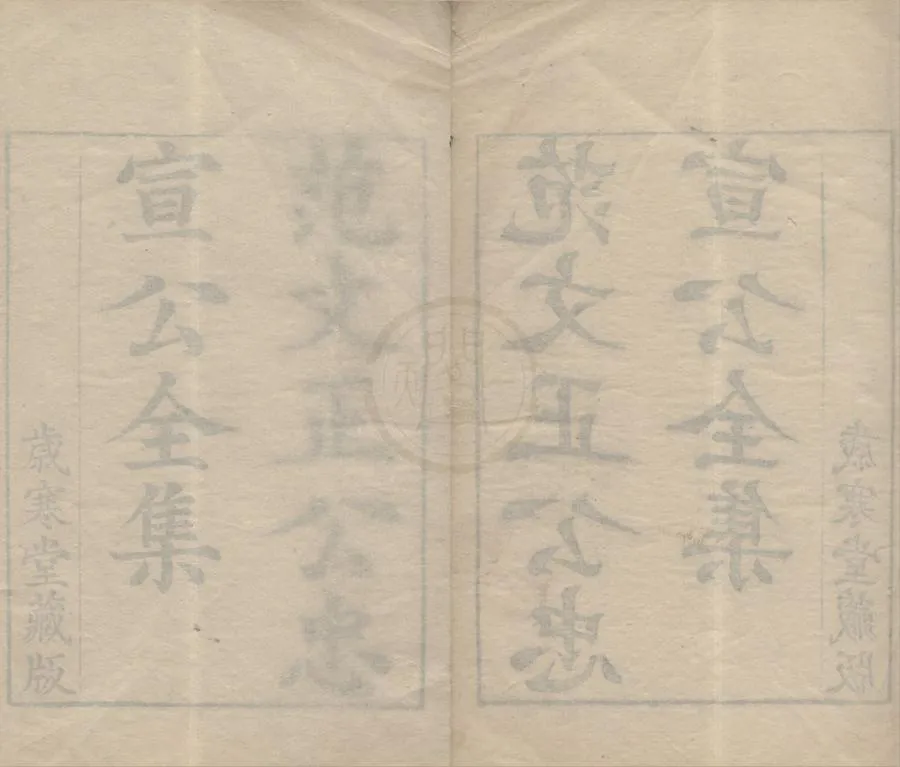 范文正公忠
宣公全集
歲寒堂藏版
范文正公忠
宣公全集
歲寒堂藏版